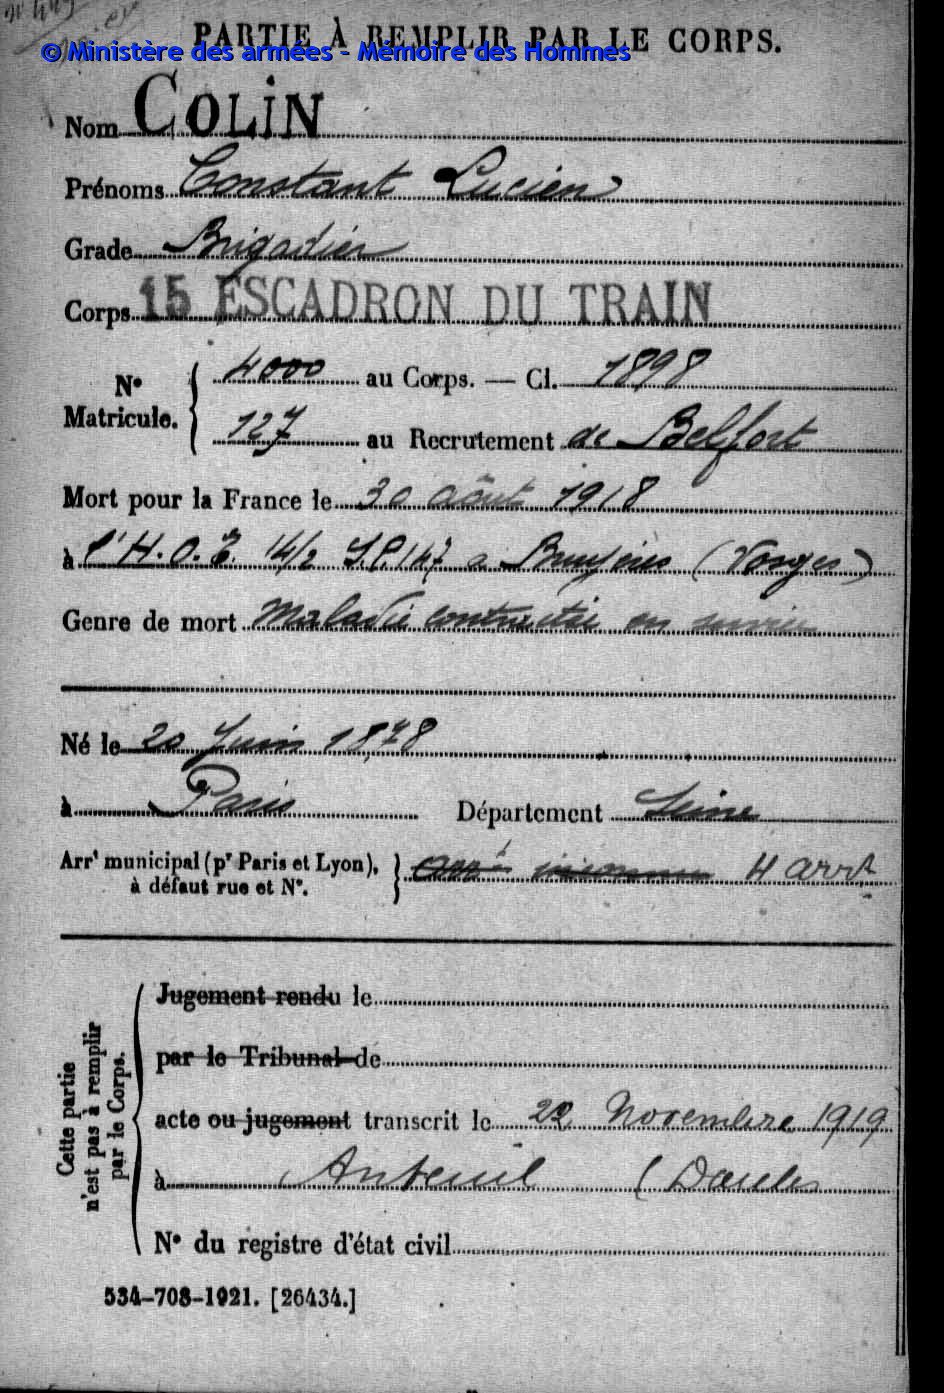 PARTIE À REMPLIR PAR LE CORPS.
© Ministère des armées - Mémoire des Hommes
Nom COLIN
Prénoms Constant Lucien
Grade Brigadier
Corps 15 ESCADRON DU TRAIN
N° Matricule. 4000 au Corps. — Cl. 1898
127 au Recrutement de Belfort
Mort pour la France le 30 août 1918
à l'H.O.E. 14/2 S.P. 147 à Bruyères (Vosges)
Genre de mort Maladie contractée en service
Né le 20 Juin 1878
à Paris Département Seine
Arrt municipal (pr Paris et Lyon), à défaut rue et N°. 4 arrt
Cette partie n'est pas à remplir par le Corps.
Jugement rendu le
par le Tribunal de
acte ou jugement transcrit le 22 Novembre 1919
à Auteuil (Doubs
N° du registre d'état civil
534-708-1921. [26434.]